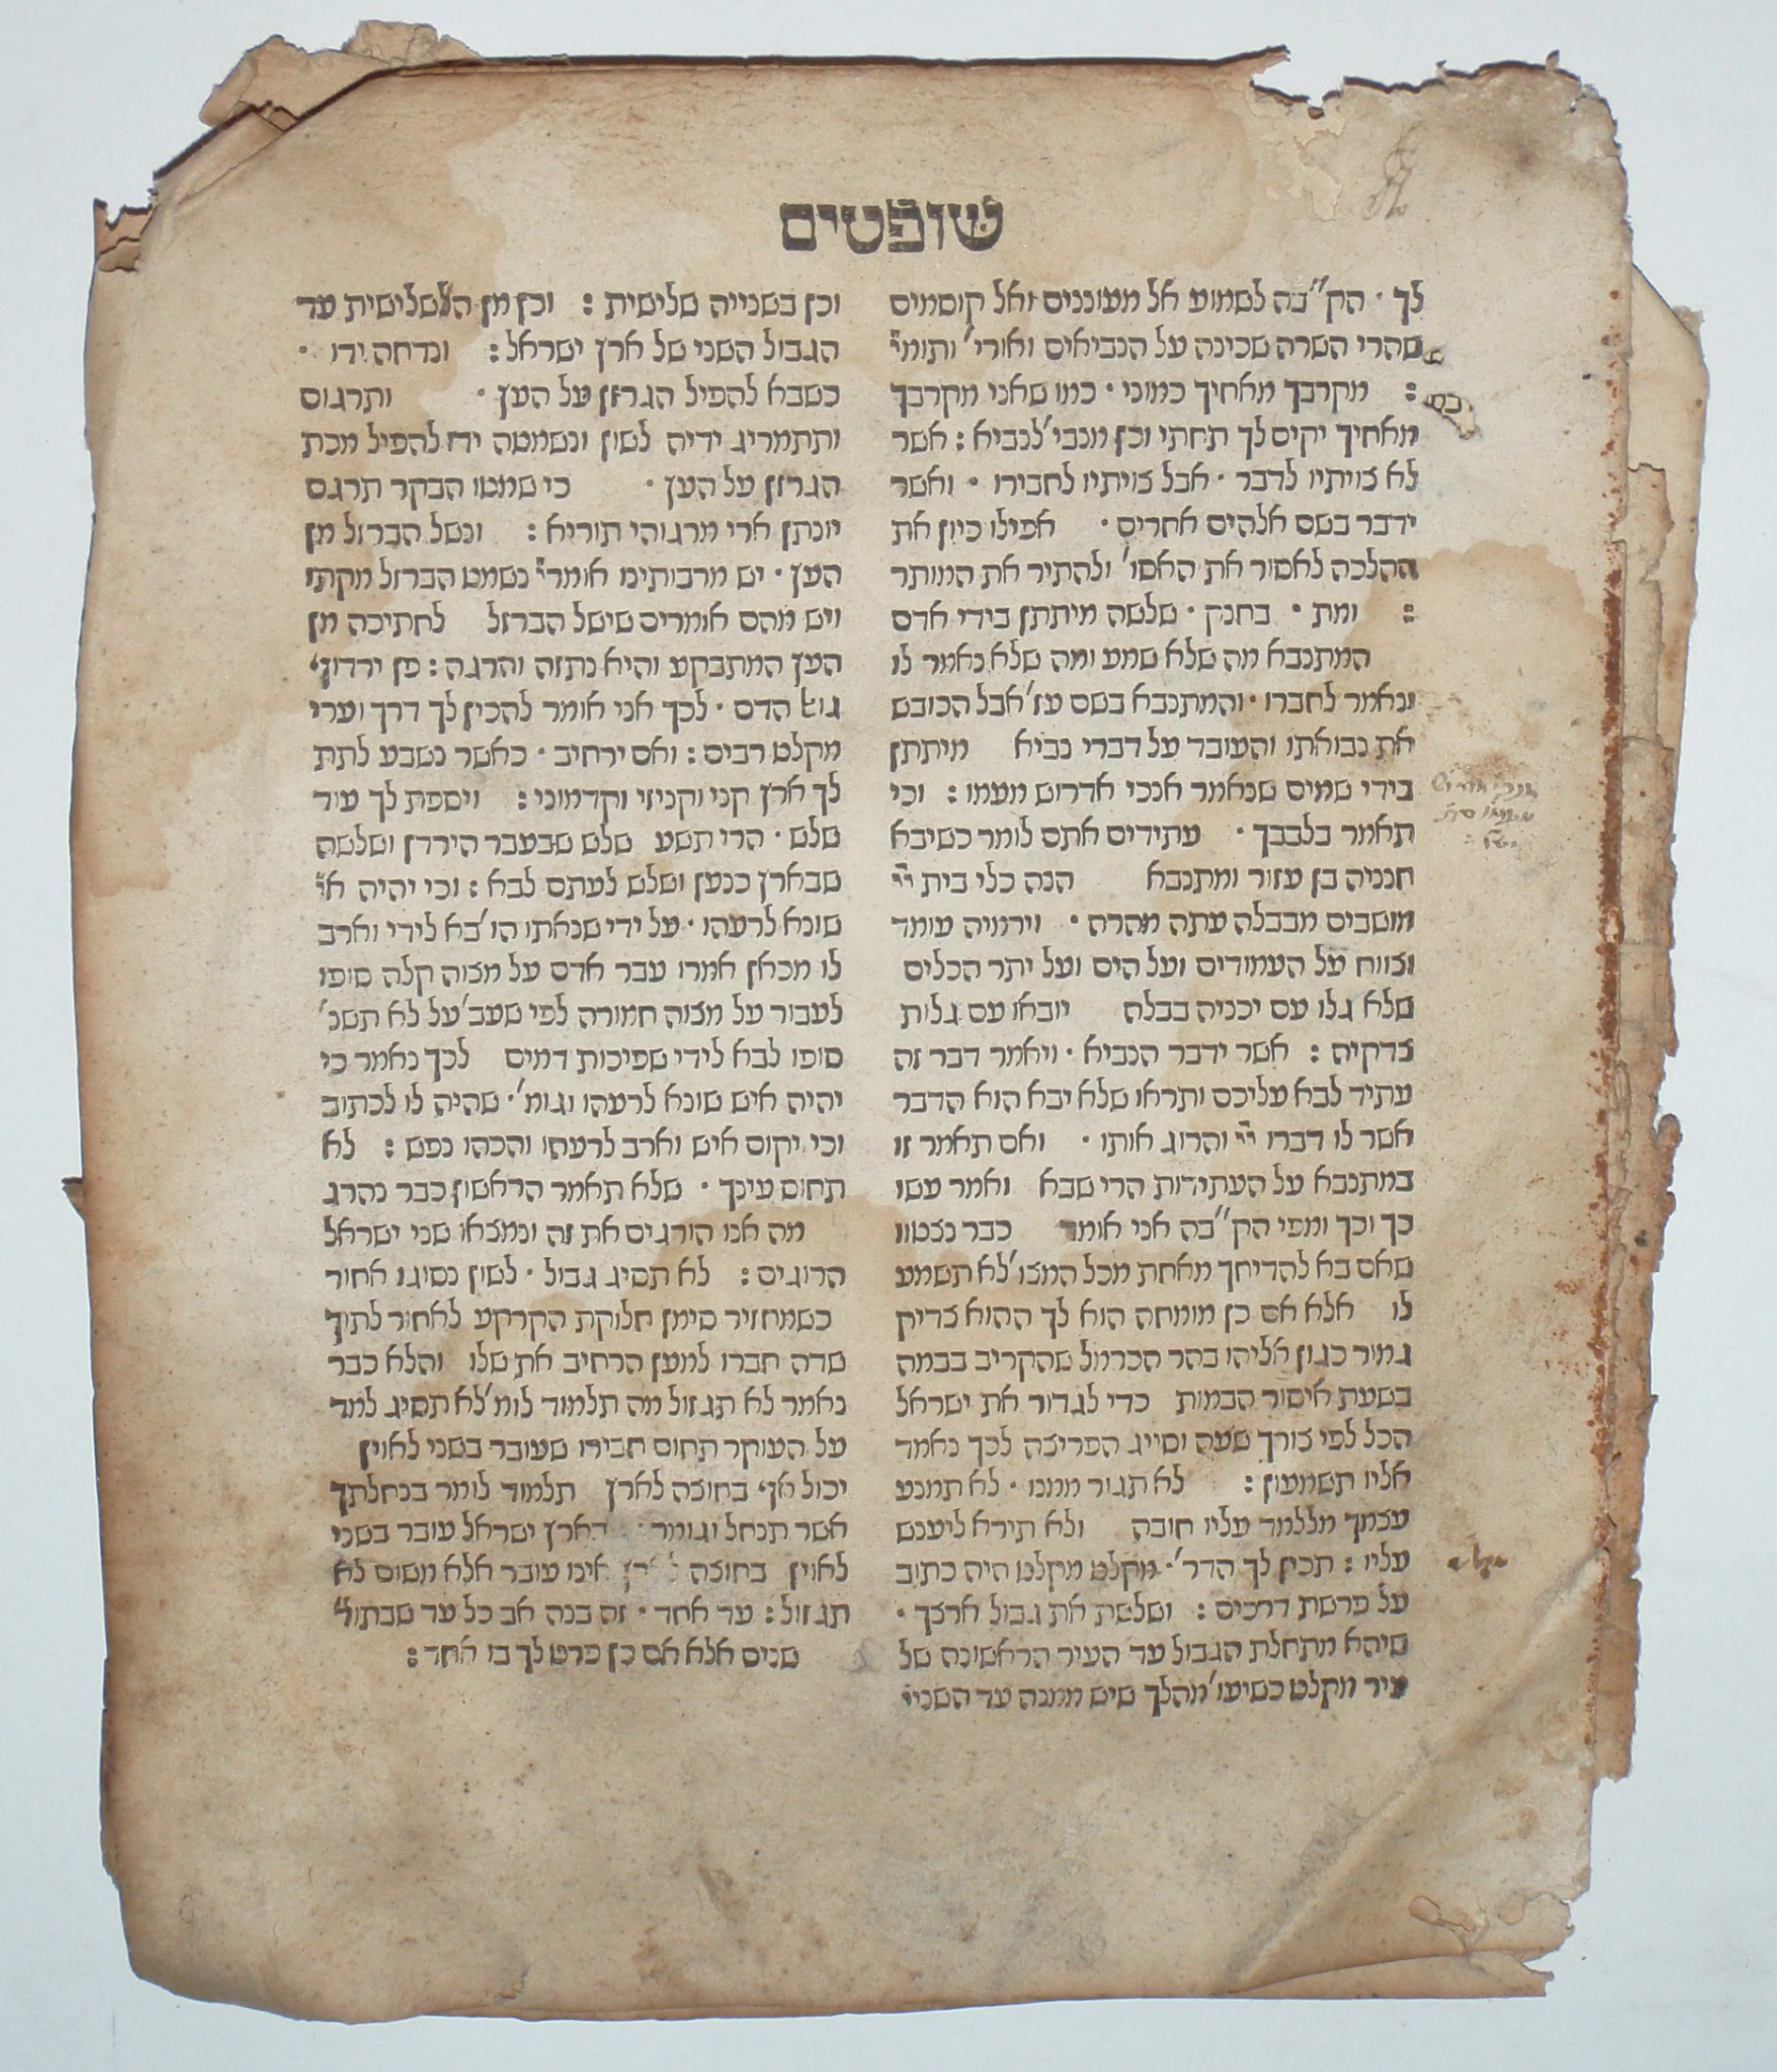 שופטים
לך · הק"בה לשמוע אל מעוננים ואל קוסמים
שהרי השרה שכינה על הנביאים ואורי' ותומי"
: מקרבך מאחיך כמוני · כמו שאני מקרבך
מאחיך יקים לך תחתי וכן מנבי' לנביא : אשר
לא צויתיו לדבר · אבל צויתיו לחבירו · ואשר
ידבר בשם אלהים אחרים · אפילו כיון את
ההלכה לאסור את האסו' ולהתיר את המותר
: ומת · בחנק · שלשה מיתתן בידי אדם
המתנבא מה שלא שמע ומה שלא נאמר לו
ונאמר לחברו · והמתנבא בשם עז' אבל הכובש
את נבואתו והעובר על דברי נביא מיתתן
בידי שמים שנאמר אנכי אדרוש מעמו : וכי
תאמר בלבבך · עתידים אתם לומר כשיבא
חנניה בן עזור ומתנבא הנה כלי בית יי"
מושבים מבבלה עתה מהרה · וירמיה עומד
וצווח על העמודים ועל הים ועל יתר הכלים
שלא גלו עם יכניה בבלה יובאו עם גלות
צדקיה : אשר ידבר הנביא · ויאמר דבר זה
עתיד לבא עליכם ותראו שלא יבא הוא הדבר
אשר לו דברו יי" והרוג אותו · ואם תאמר זו
במתנבא על העתידות הרי שבא ואמר עשו
כך וכך ומפי הק"בה אני אומר כבר נצטוו
שאם בא להדיחך מאחת מכל המצו' לא תשמע
לו אלא אם כן מומחה הוא לך ההוא צדיק
גמור כגון אליהו בהר הכרמל שהקריב בבמה
בשעת איסור הבמות כדי לגדור את ישראל
הכל לפי צורך שעה וסייג הפריצה לכך נאמר
אליו תשמעון : לא תגור ממנו · לא תמנע
עצמך מללמד עליו חובה ולא תירא ליענש
עליו : תכין לך הדר' · מקלט מקלט היה כתוב
על פרשת דרכים : ושלשת את גבול ארצך ·
שיהא מתחלת הגבול עד העיר הראשונה של
עיר מקלט כשיעו' מהלך שיש ממנה עד השניי
וכן בשנייה שלישית : וכן מן השלישית עד
הגבול השני של ארץ ישראל : ונדחה ידו ·
כשבא להפיל הגרזן על העץ · ותרגום
ותתמריג ידיה לשון ונשמטה ידו להפיל מכת
הגרזן על העץ · כי שמטו הבקר תרגם
יונתן ארי מרגוהי תוריא : ונשל הברזל מן
העץ · יש מרבותינו אומרי" נשמט הברזל מקתו
ויש מהם אומרים שישל הברזל לחתיכה מן
העץ המתבקע והיא נתזה והרגה : פן ירדוף
גואל הדם · לכך אני אומר להכין לך דרך וערי
מקלט רבים : ואם ירחיב · כאשר נשבע לתת
לך ארץ קני וקניזי וקדמוני : ויספת לך עוד
שלש · הרי תשע שלש שבעבר הירדן ושלשה
שבארץ כנען ושלש לעתם לבא : וכי יהיה אי"
שונא לרעהו · על ידי שנאתו הו' בא לידי וארב
לו מכאן אמרו עבר אדם על מצוה קלה סופו
לעבור על מצוה חמורה לפי שעב' על לא תשנ'
סופו לבא לידי שפיכות דמים לכך נאמר כי
יהיה איש שונא לרעהו וגומ' · שהיה לו לכתוב
וכי יקום איש וארב לרעהו והכהו נפש : לא
תחוס עינך · שלא תאמר הראשון כבר נהרג
מה אנו הורגים את זה ונמצאו שני ישראל
הרוגים : לא תסיג גבול · לשון נסוגו אחור
כשמחזיר סימן חלוקת הקרקע לאחור לתוך
שדה חברו למען הרחיב את שלו והלא כבר
נאמר לא תגזול מה תלמוד לומ' לא תסיג למד
על העוקר תחום חבירו שעובר בשני לאוין
יכול אף בחוצה לארץ תלמוד לומר בנחלתך
אשר תנחל וגומר · בארץ ישראל עובר בשני
לאוין בחוצה אינו עובר אלא משום לא
תגזול : עד אחד · זה בנה אב כל עד שבתור'
שנים אלא אם כן פרט לך בו אחד :